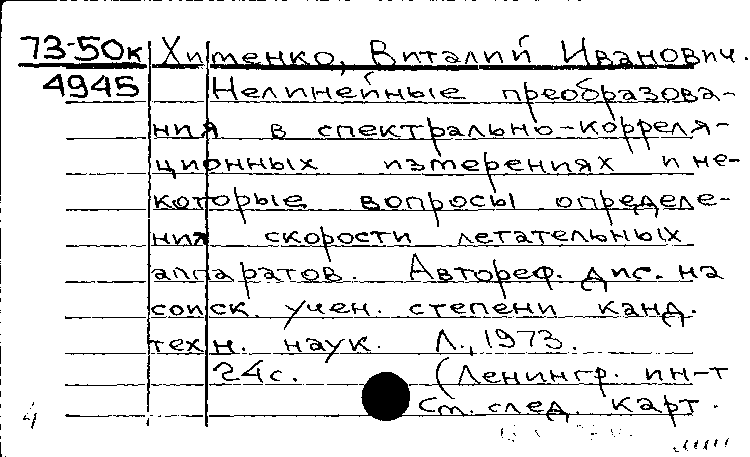 73-50к Хитенко, Виталий Иванович.
4945 Нелинейные преобразова-
ния в спектрально-корреля-
ционных измерениях и не-
которые вопросы определе-
ния скорости летательных
аппаратов. Автореф. дис. на
соиск. учен. степени канд.
техн. наук. Л., 1973.
24с. (Ленингр. ин-т
4 См. след. карт.